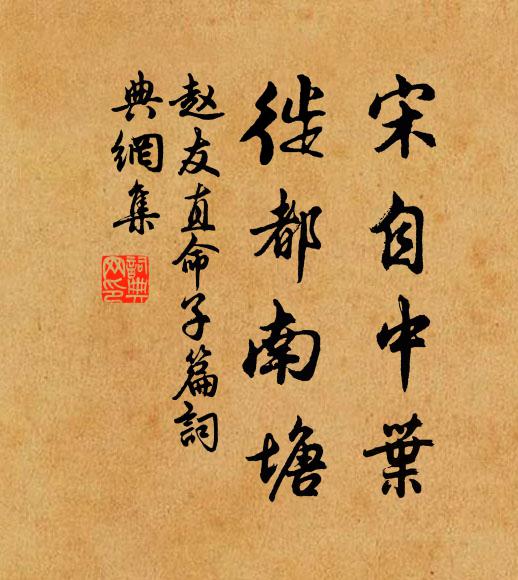 宋自中葉
徙都南塘
赵友直命子篇詞
典網集
詞典網印